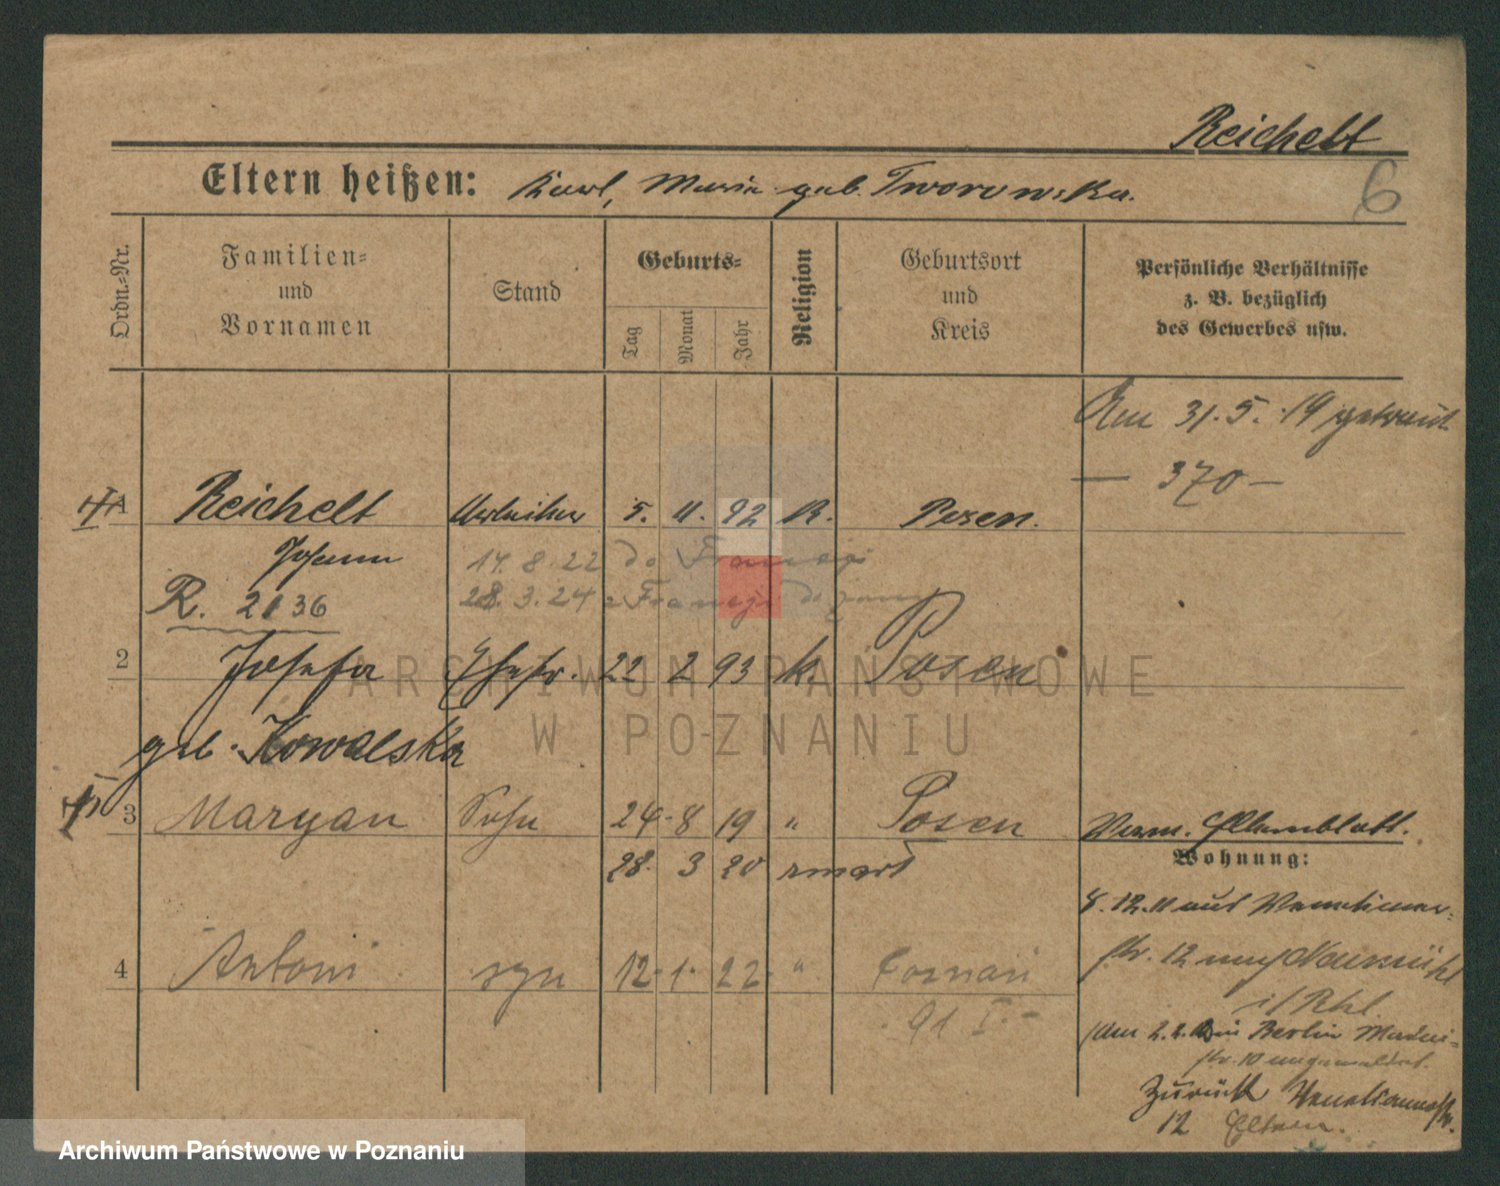 Reichelt
6
Eltern heißen: Karl, Maria geb. Tworowska.
Ordn.-Nr.
Familien- und Vornamen
Stand
Geburts-
Tag
Monat
Jahr
Religion
Geburtsort und Kreis
Persönliche Verhältnisse z. B. bezüglich des Gewerbes usw.
Am 31. 5. 19 getraut
— 370 —
1 Reichelt 5. 11. 92 K. Posen.
Johann 14. 8. 22 do Francji
R. 2136 28. 3. 24 z Francji
2 Josefa Ehefr. 22 2 93 k. Posen
geb. Kowalska
3 Maryan Sohn 24 8 19 " Posen
Verm. Elternblatt.
28. 3 20 zmarł
Wohnung:
8. 12. 11 aus
4 Antoni syn 12 1. 22 " Poznań
str. 12 nach Neumühl
91 I. -
i/Rhl.
Am 2. 2. in Berlin
str. 10 umgemeldet.
Zurück
12 Eltern.
ARCHIWUM PAŃSTWOWE
W POZNANIU
Archiwum Państwowe w Poznaniu